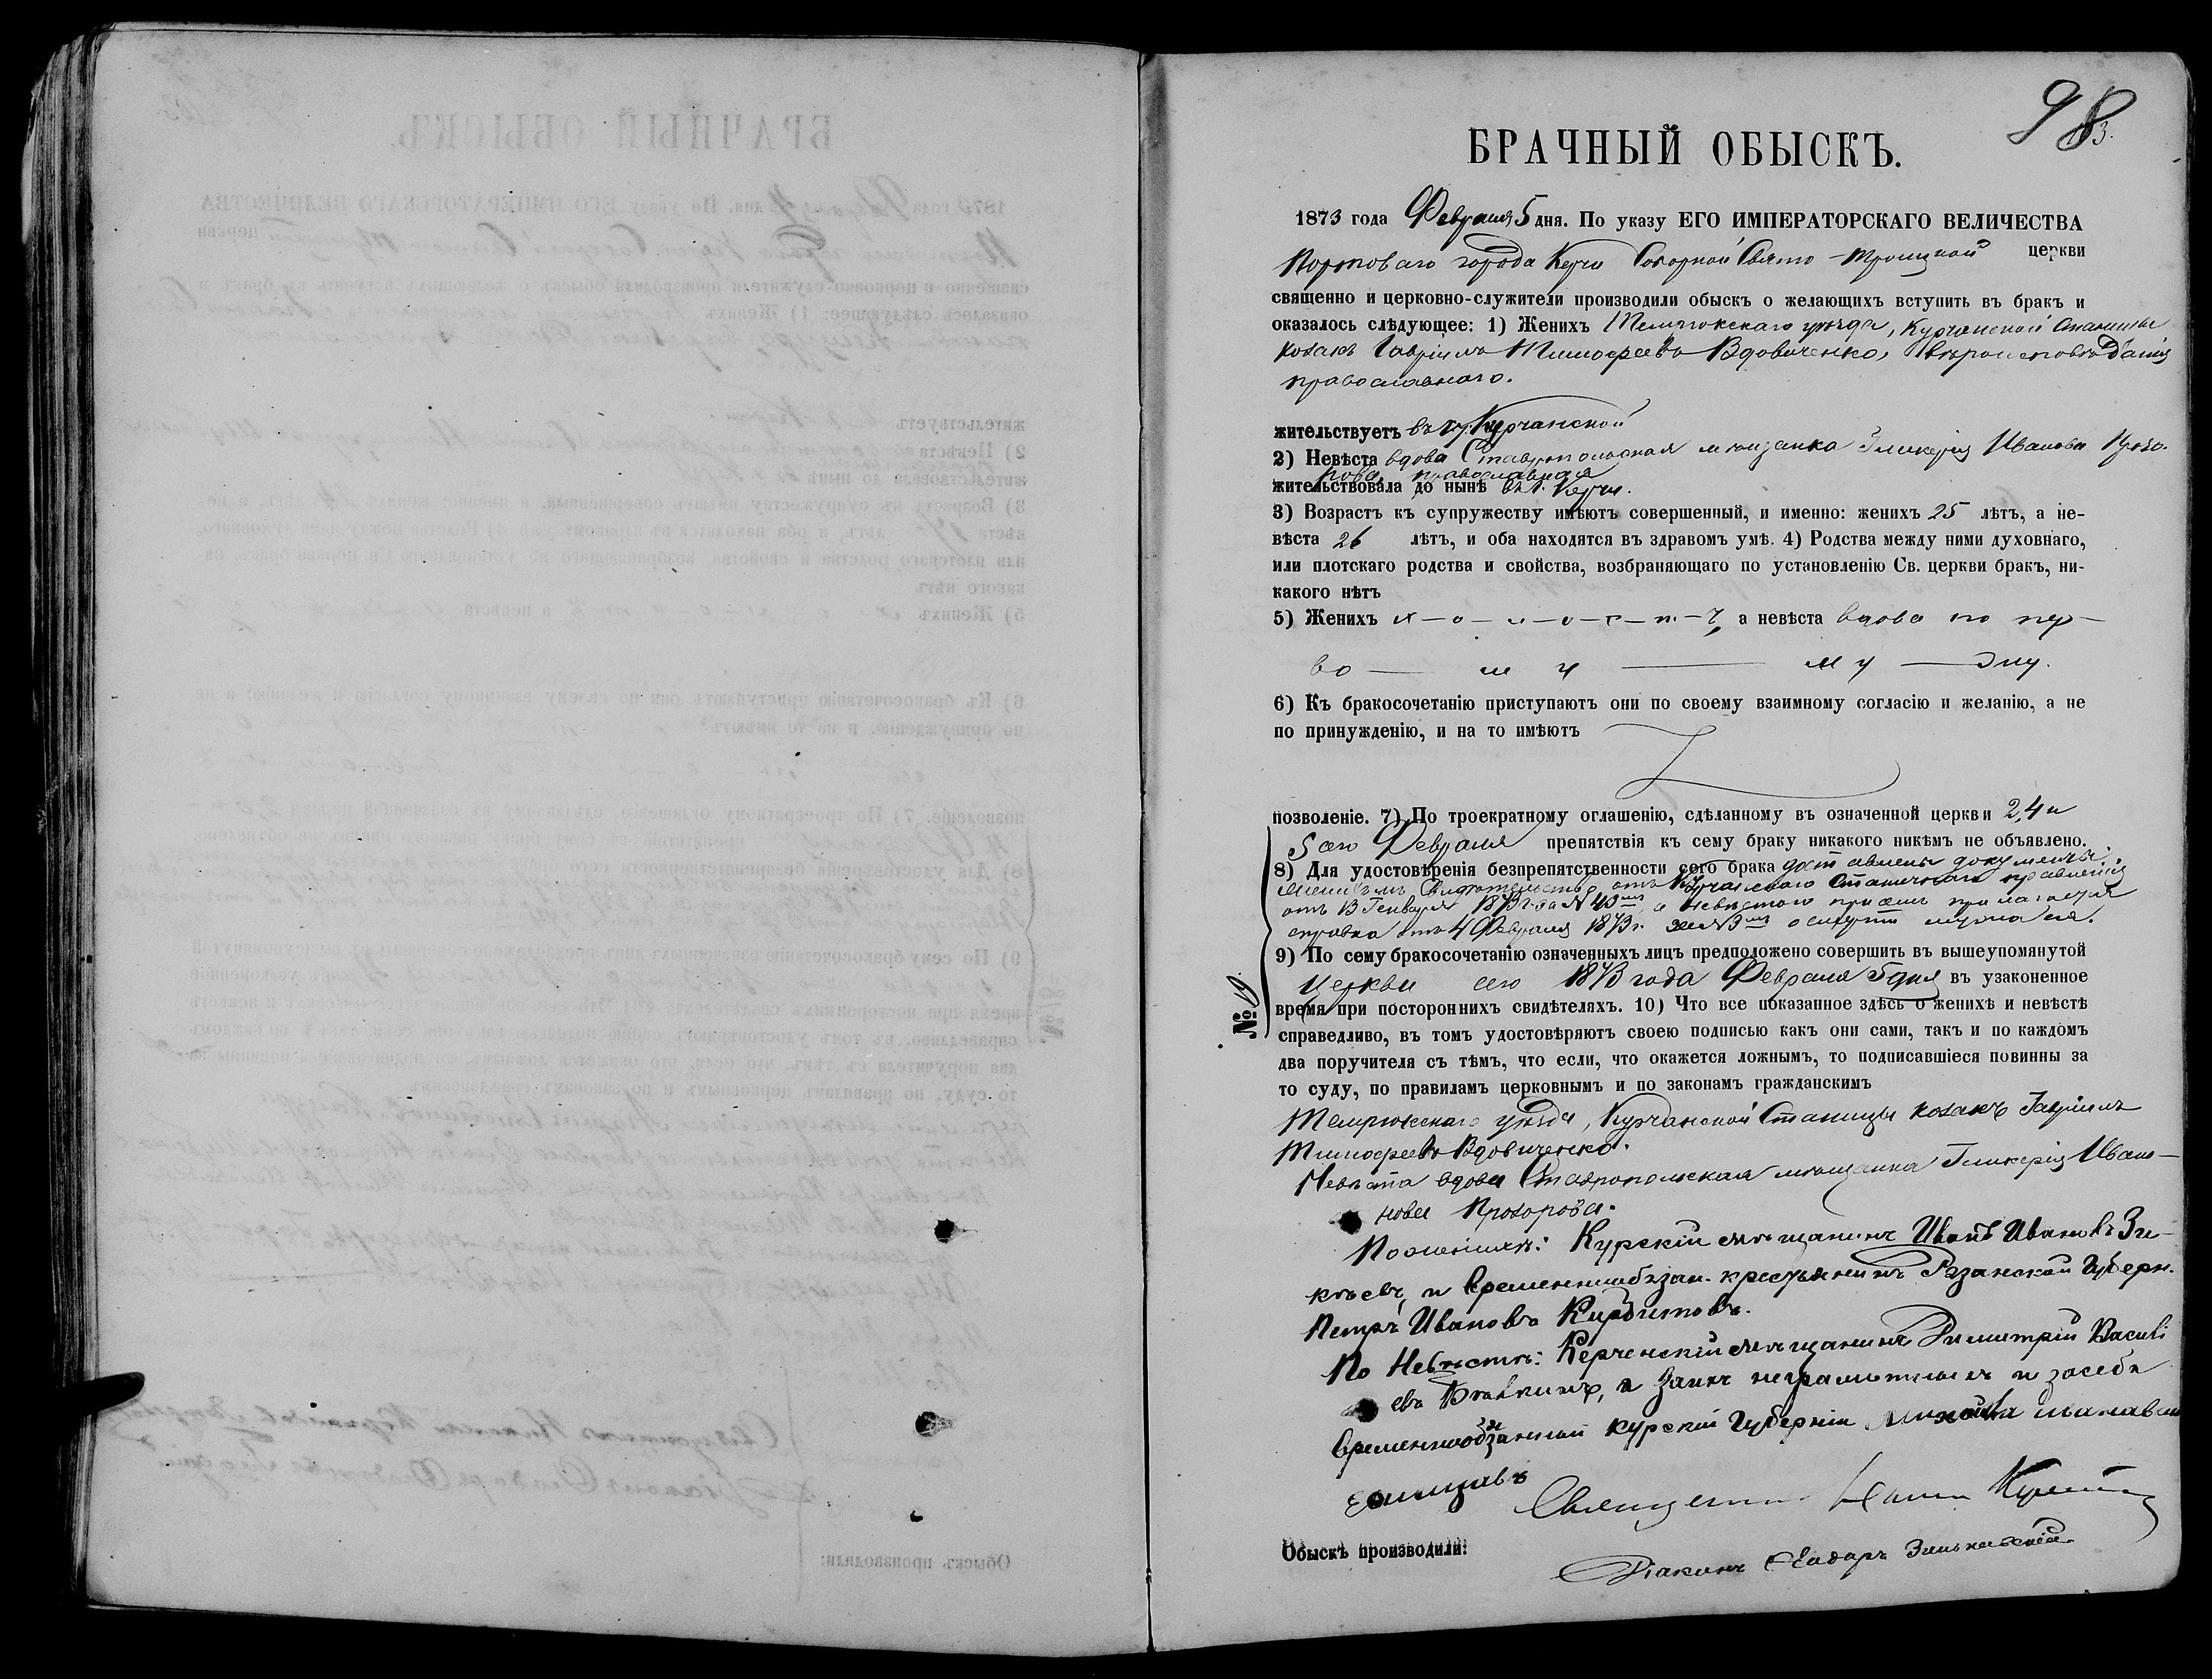 98
3.
БРАЧНЫЙ ОБЫСКЪ.
1873 года Февраля 5 дня. По указу ЕГО ИМПЕРАТОРСКАГО ВЕЛИЧЕСТВА
Портоваго города Керчи Соборной Свято-Троицкой церкви
священно и церковно-служители производили обыскъ о желающихъ вступить въ бракъ и
оказалось слѣдующее: 1) Женихъ Темрюкскаго уѣзда, Курчанской Станицы
козакъ Гавріилъ Тимофеевъ Вдовиченко, вѣроисповѣданія
православнаго.
жительствуетъ въ Курчанской
2) Невѣста вдова Ставропольская мѣщанка Гликерія Иванова Прозо-
рова, православная
жительствовала до нынѣ въ г. Керчи.
3) Возрастъ къ супружеству имѣютъ совершенный, и именно: женихъ 25 лѣтъ, а не-
вѣста 26 лѣтъ, и оба находятся въ здравомъ умѣ. 4) Родства между ними духовнаго,
или плотскаго родства и свойства, возбраняющаго по установленію Св. церкви бракъ, ни-
какого нѣтъ
5) Женихъ х-о-л-о-с-т-ъ, а невѣста вдова по пер-
во — м у — му — жу.
6) Къ бракосочетанію приступаютъ они по своему взаимному согласію и желанію, а не
по принужденію, и на то имѣютъ
позволеніе. 7) По троекратному оглашенію, сдѣланному въ означенной церкви 2, 4 и
5 сего Февраля препятствія къ сему браку никакого никѣмъ не объявлено.
8) Для удостовѣренія безпрепятственности сего брака доставлены документы:
Женихомъ Свидѣтельство отъ Курчанскаго Станичнаго правленія
отъ 13 Генваря 1873 г. за № 43мъ, а Невѣстою при семъ прилагается
справка отъ 4 Февраля 1873 г. за № 3мъ о смерти мужа ея.
9) По сему бракосочетанію означенныхъ лицъ предположено совершить въ вышеупомянутой
Церкви сего 1873 года Февраля 5 дня въ узаконенное
№ 19.
время при постороннихъ свидѣтеляхъ. 10) Что все показанное здѣсь о женихѣ и невѣстѣ
справедливо, въ томъ удостовѣряютъ своею подписью какъ они сами, такъ и по каждомъ
два поручителя съ тѣмъ, что если, что окажется ложнымъ, то подписавшіеся повинны за
то суду, по правиламъ церковнымъ и по законамъ гражданскимъ
Темрюкскаго уѣзда, Курчанской Станицы козакъ Гавріилъ
Тимофеевъ Вдовиченко.
Невѣста вдова Ставропольская мѣщанка Гликерія Ивано-
нова Прозорова.
По женихѣ: Курскій мѣщанинъ Иванъ Ивановъ
и временнообязан. крестьянинъ Рязанской Губерн.
Петръ Ивановъ
По Невѣстѣ: Керченскій мѣщанинъ Димитрій Василі
евъ и за ихъ неграмотныхъ и засебя
временнообязанный Курской Губерніи
Священникъ
Обыскъ производили:
Діаконъ